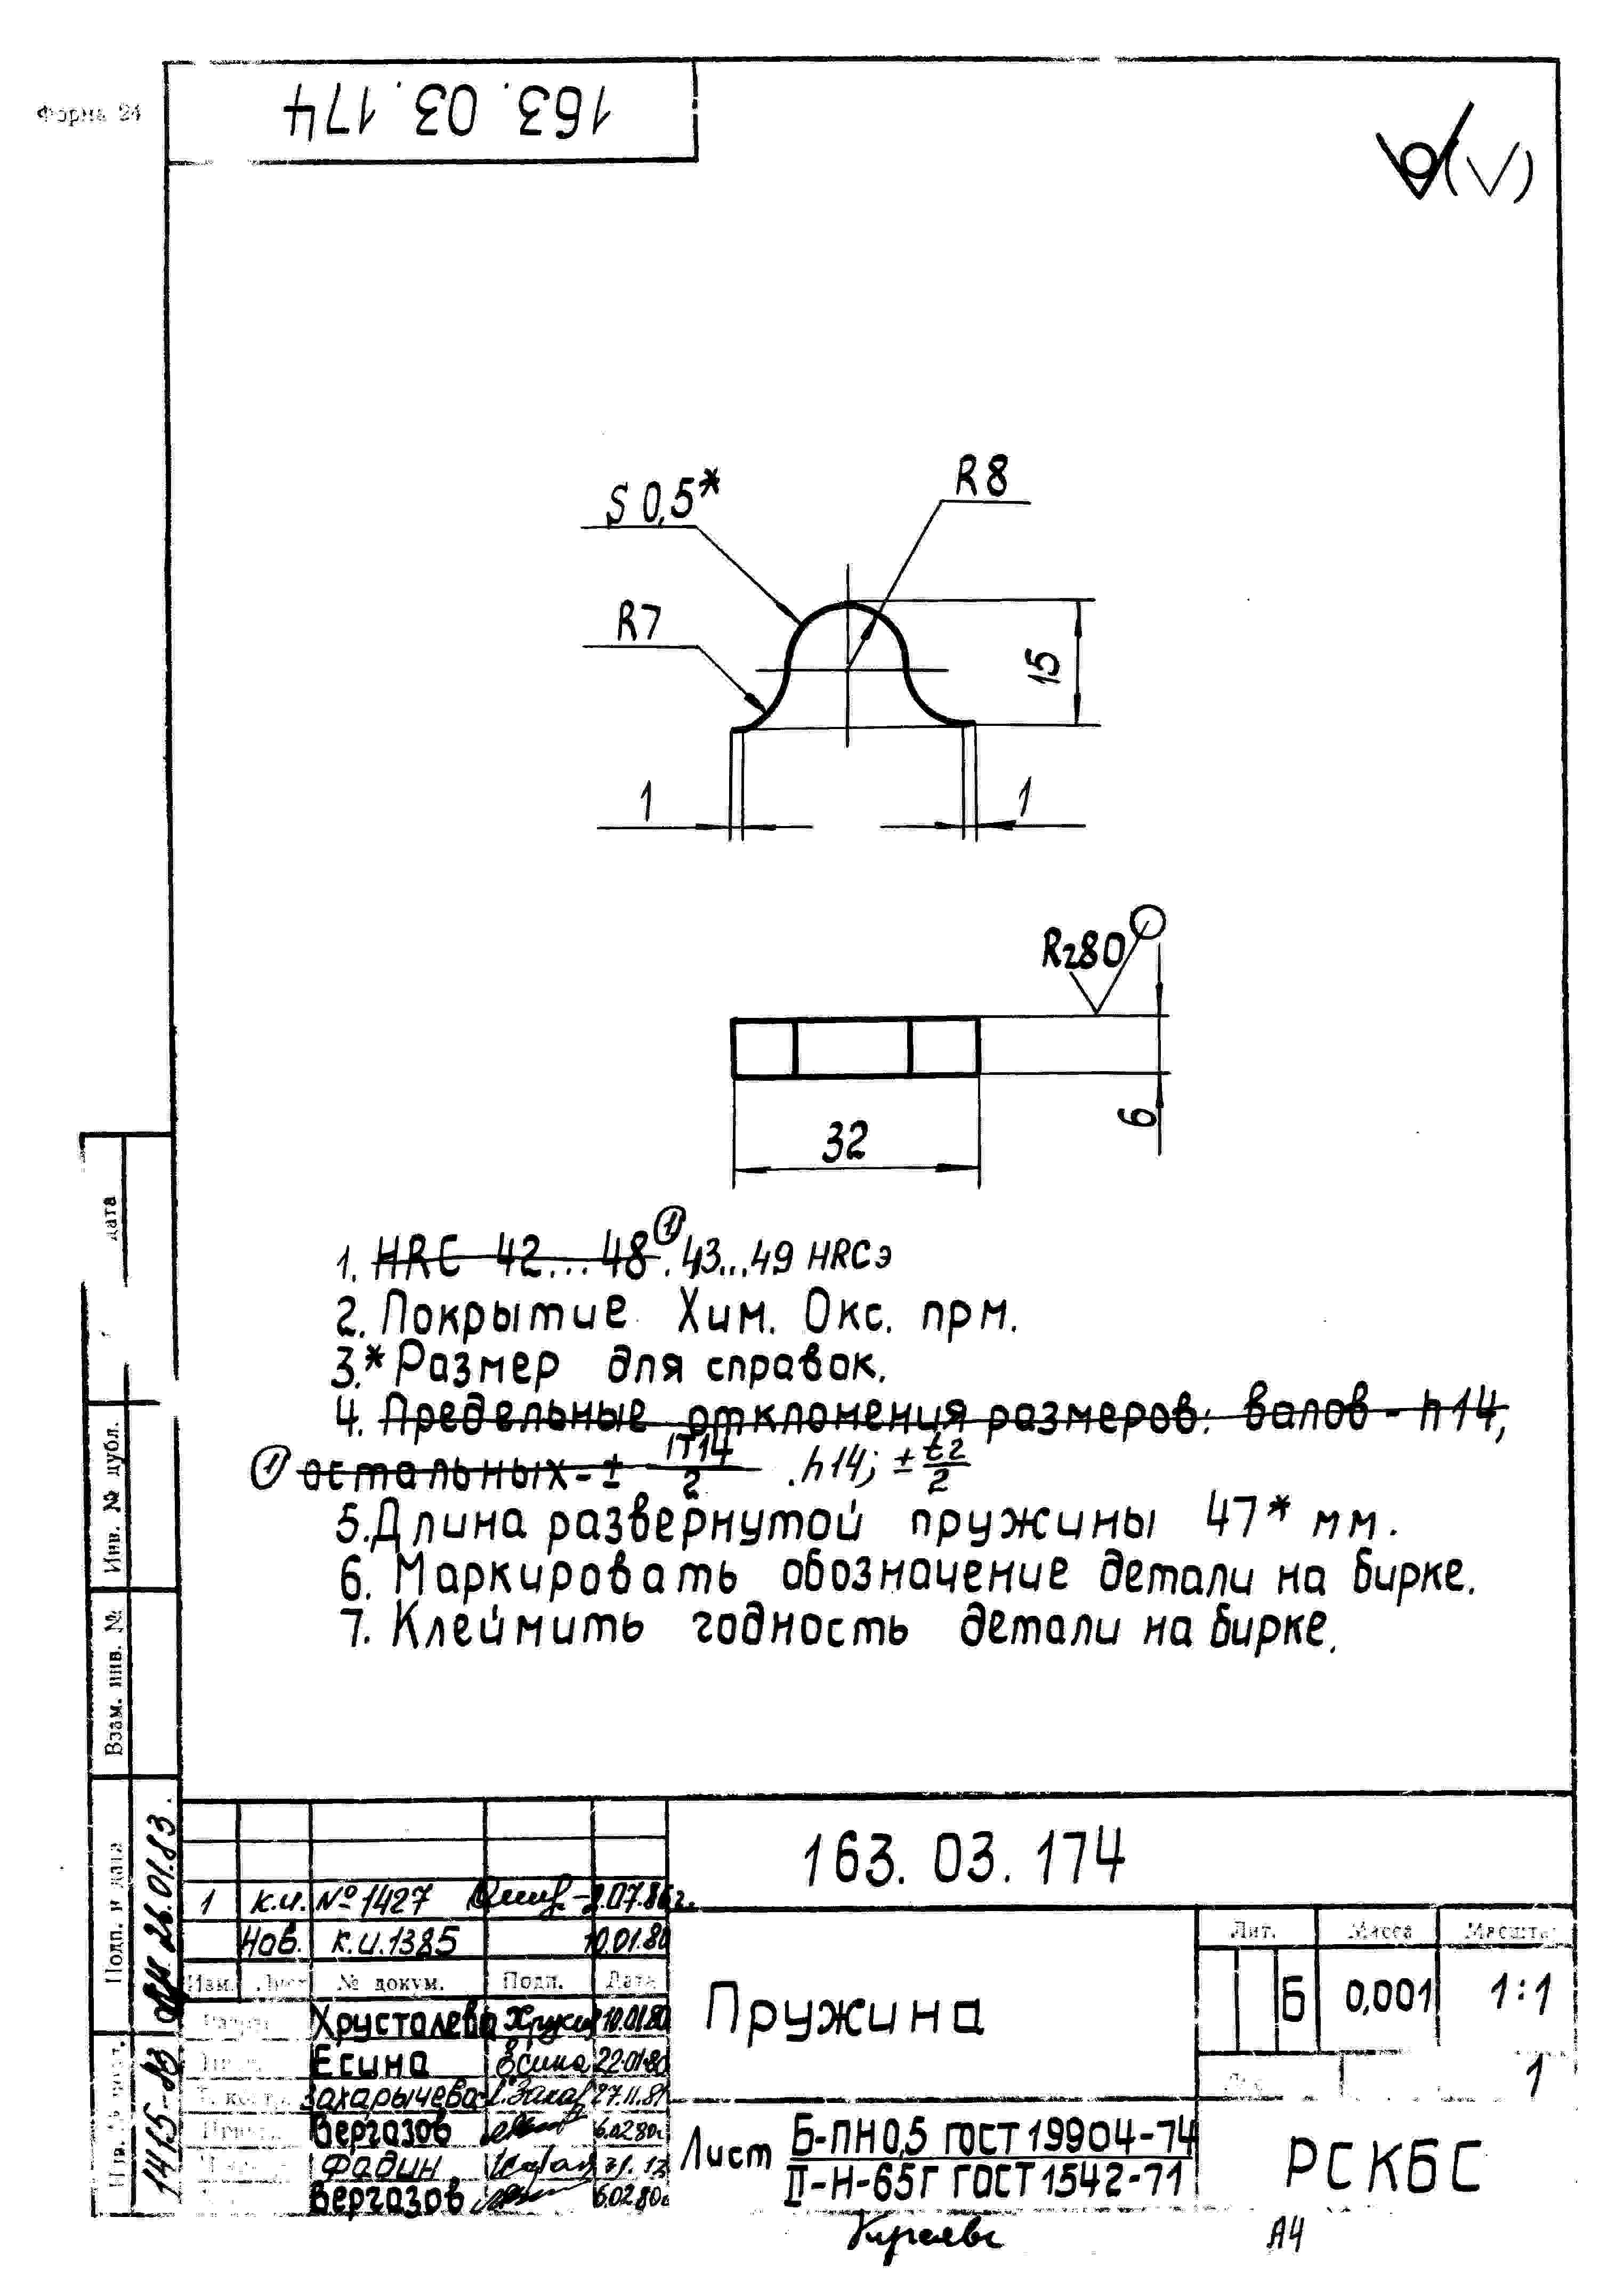 Форма 24
163.03.174
(√)
S 0,5*
R8
R7
15
1
1
Rz80
6
32
1. HRC 42...48 ① . 43...49 HRCэ
2. Покрытие Хим. Окс. прм.
3.* Размер для справок.
4. Предельные отклонения размеров: валов - h14,
① остальных - ± IT14/2 . h14; ± t2/2
5. Длина развернутой пружины 47* мм.
6. Маркировать обозначение детали на бирке.
7. Клеймить годность детали на бирке.
дата
Инв. № дубл.
Взам. инв. №
Подп. и дата
26.01.83.
1415-83
163.03.174
1 к.и. №1427 2.07.86г.
Нов. к.и.1385 10.01.80
Изм. Лист № докум. Подп. Дата
Хрусталева 10.01.80
Есина Есина 22.01.80
Захарычева 27.11.81
Вергазов 6.02.80г
Фадин
Вергазов 6.02.80г
Пружина
Лит. Масса Масштаб
Б 0,001 1:1
1
Лист Б-ПН 0,5 ГОСТ 19904-74
II-Н-65Г ГОСТ 1542-71
РСКБС
А4